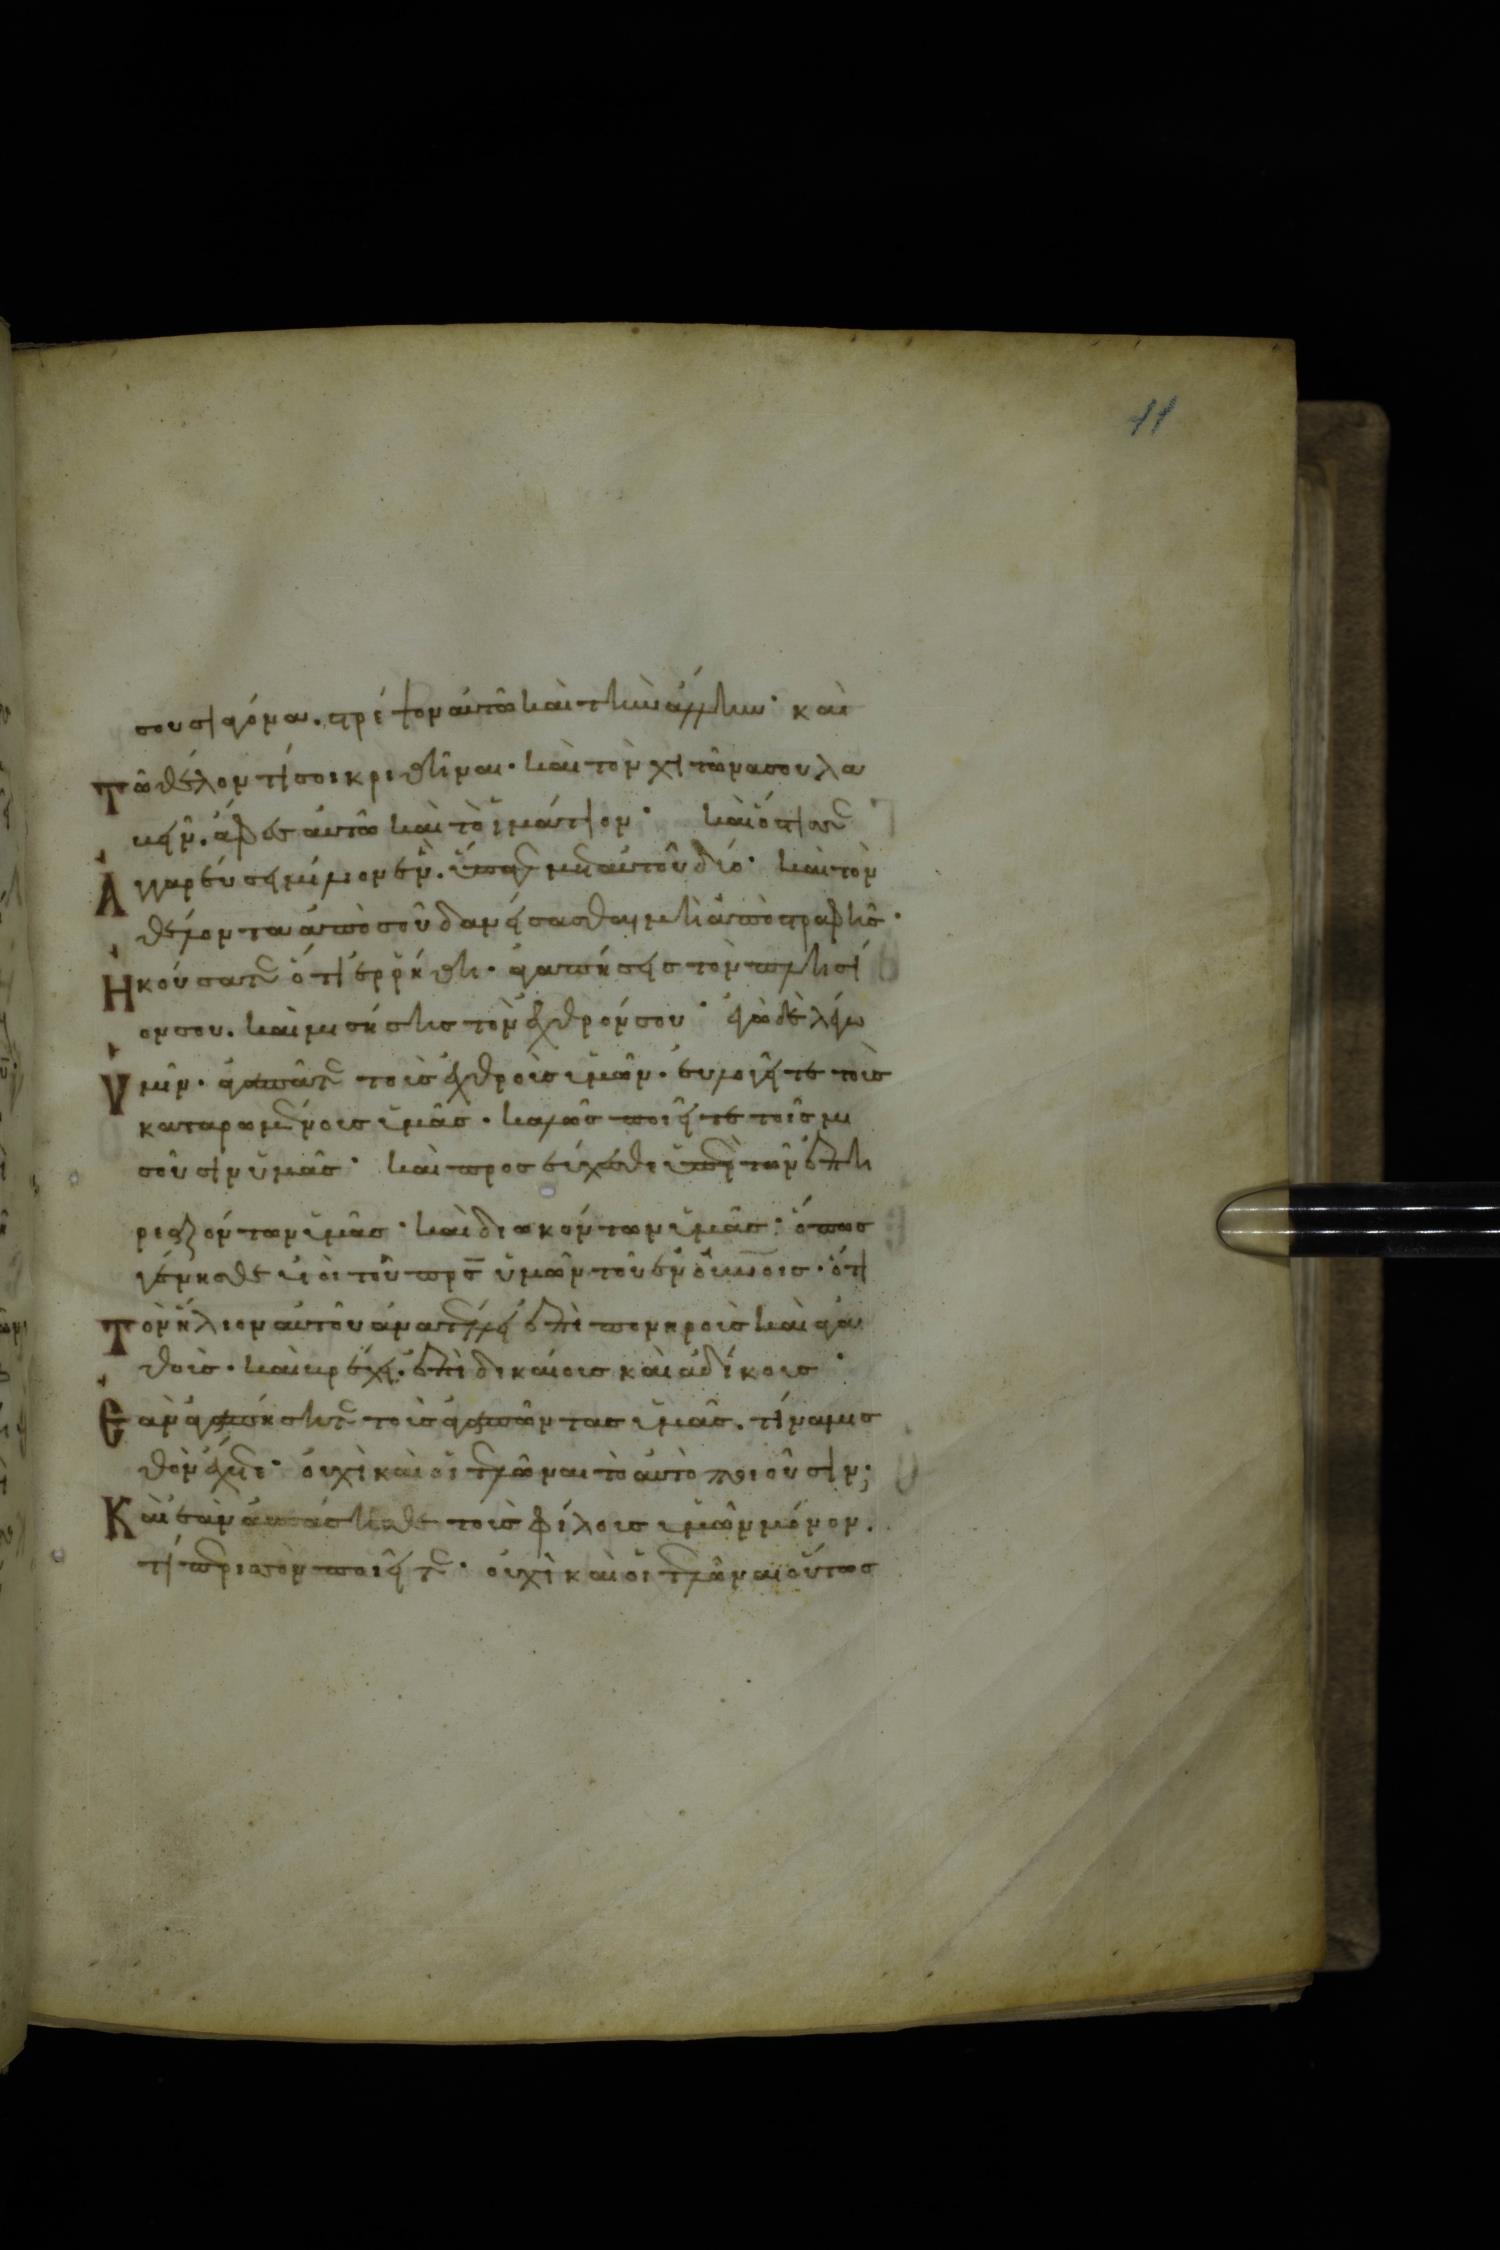 11
σου σιαγόνα. στρέψον αυτῶ καὶ τὴν ἄλλην· καὶ
Τῶ θέλοντί σοι κριθῆναι. καὶ τὸν χιτῶνα σου λα
βεῖν. ἄφες αὐτῶ καὶ τὸ ἱμάτιον· καὶ ὅστις
Ἀγγαρεύσει μίλιον ἕν. ὕπαγε μετ αὐτοῦ δύο· καὶ τὸν
θέλοντα ἀπὸ σοῦ δανείσασθαι μὴ ἀποστραφῆς.
Ἠκούσατε ὅτι ἐρρήθη. ἀγαπήσεις τὸν πλησί
ον σου. καὶ μισήσης τὸν ἐχθρόν σου· ἐγὼ δὲ λέγω
Ὑμῖν. ἀγαπᾶτε τοῖς ἐχθροῖς ὑμῶν. ἐυλογεῖτε τοῖς
καταρωμένοις ὑμᾶς. καλῶς ποιεῖτε τοῖς μι
σοῦσιν ὑμᾶς· καὶ προσεύχεσθε ὑπὲρ τῶν ἐπη
ρεαζόντων ὑμᾶς. καὶ διωκόντων ὑμᾶς· ὅπως
γένησθε υἱοὶ τοῦ πρς ὑμῶν τοῦ ἐν οὐνοις. ὅτι
Τὸν ἥλιον αὐτοῦ ἀνατέλλει ἐπὶ πονηροὶς καὶ ἀγα
θοὶς. καὶ βρέχει ἐπὶ δικαίοις καὶ ἀδίκοις·
Ἐὰν ἀγαπήσητε τοὶς ἀγαπῶντας ὑμᾶς. τίνα μισ
θὸν ἔχετε· ὀυχὶ καὶ οἱ τελῶναι τὸ αὐτὸ ποιοῦσιν;
Καὶ ἐὰν ἀσπάσησθε τοὶς φίλοις ὑμῶν μόνον.
τί περισσὸν ποιεῖτε· οὐχὶ καὶ οἱ τελῶναι οὕτως